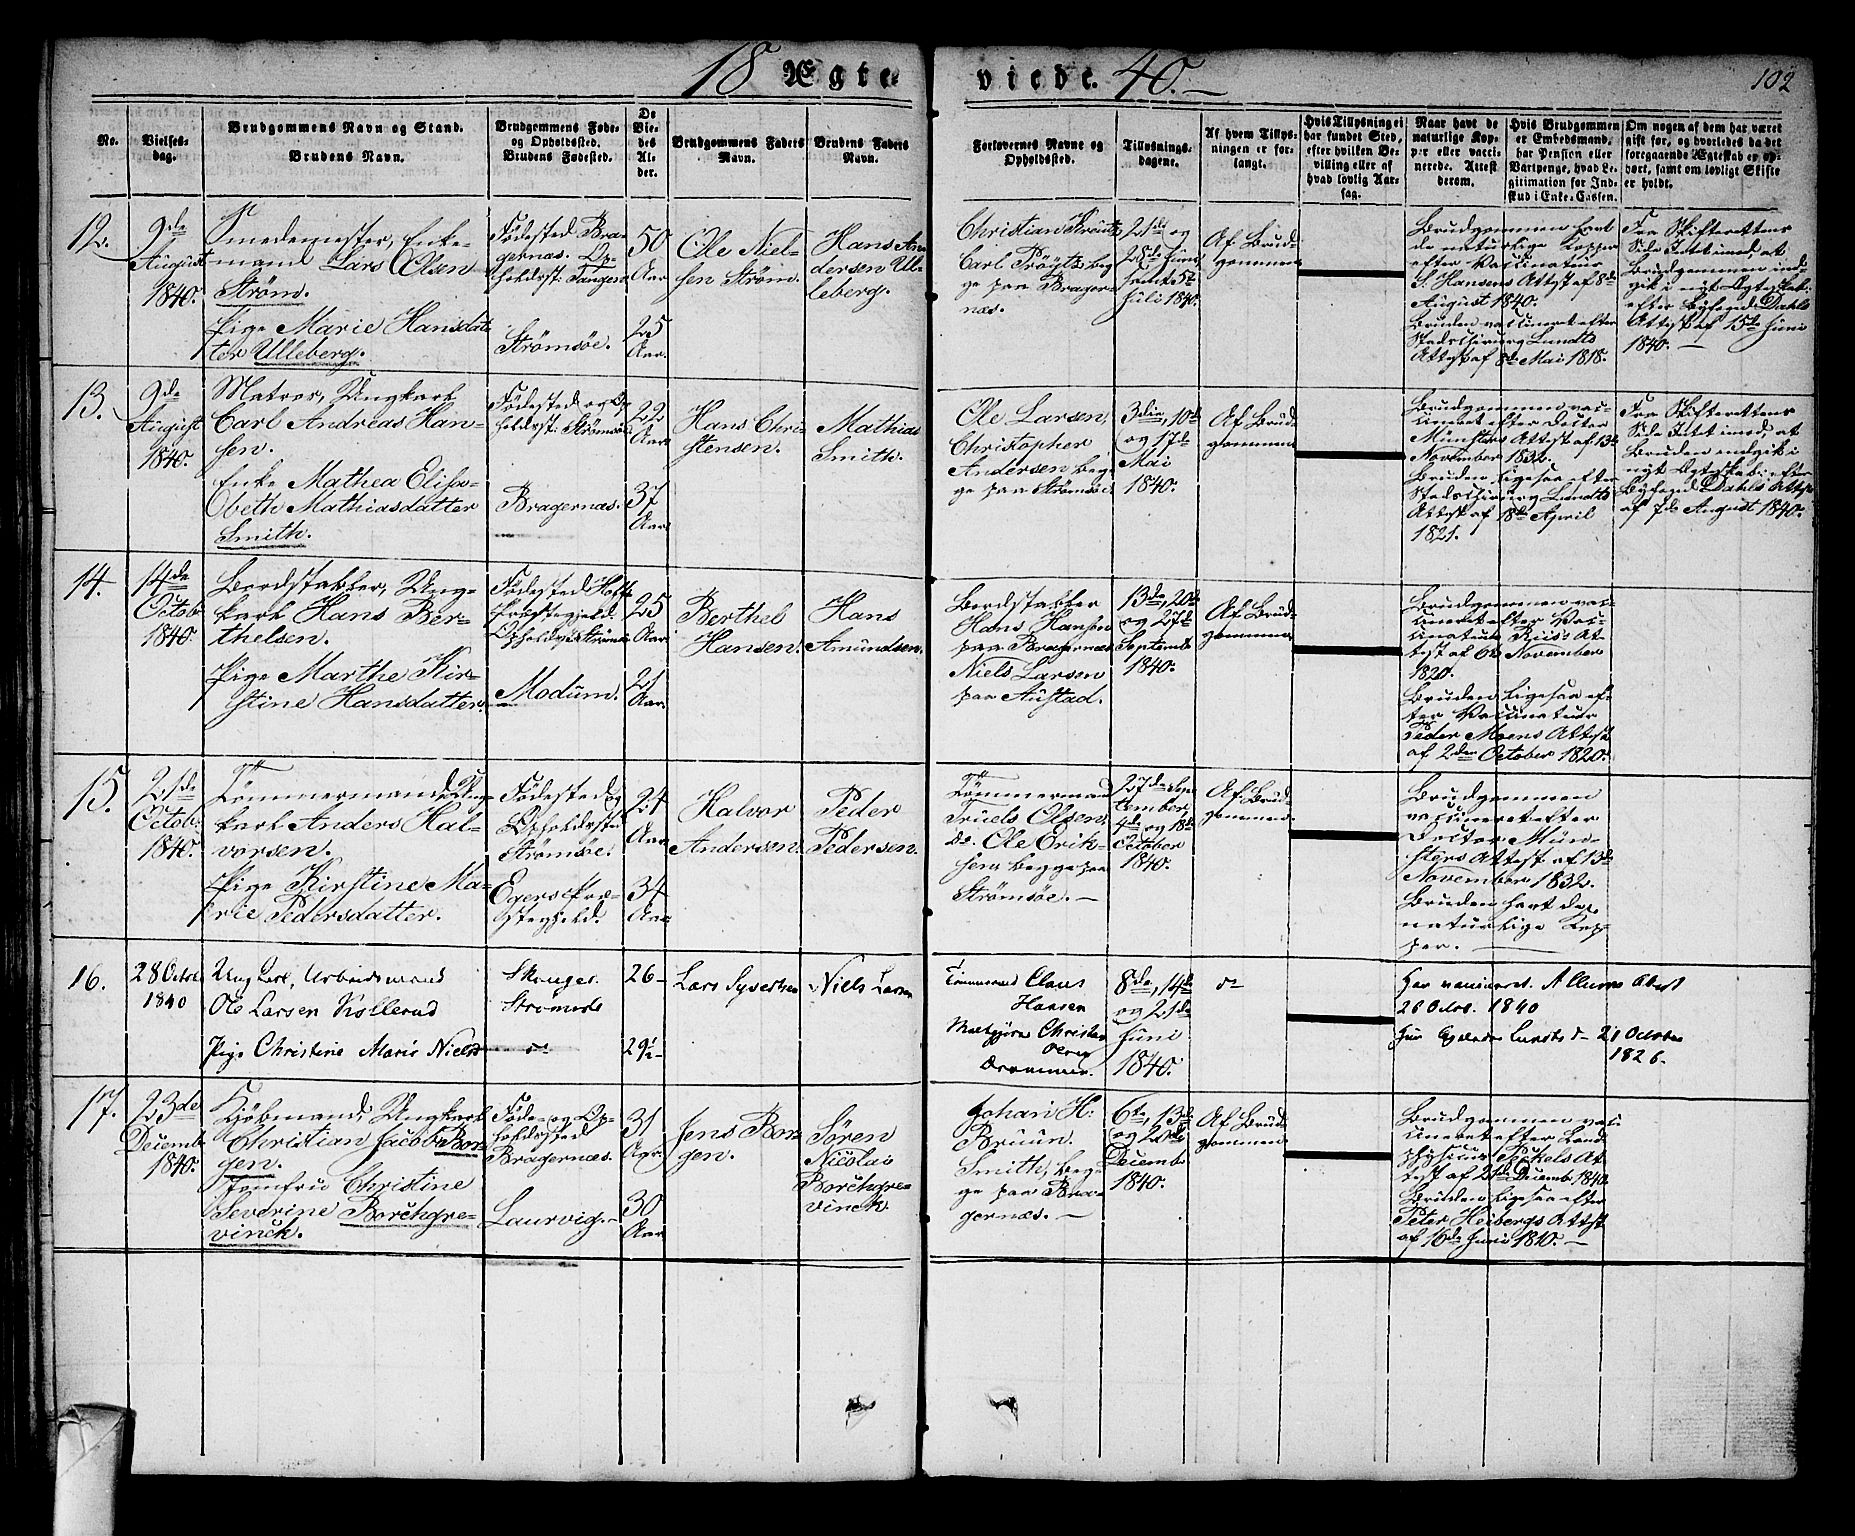 18 Ægte
viede. 40.
102
No.
Vielses-
dag.
Brudgommens Navn og Stand.
Brudens Navn.
Brudgommens Føde-
og Opholdssted.
Brudens Fødested.
De
Vie-
des
Al-
der.
Brudgommens Faders
Navn.
Brudens Faders
Navn.
Forlovernes Navne og
Opholdssted.
Tillysnings-
dagene.
Af hvem Tillys-
ningen er for-
langt.
Hvis Tillysning ei
har fundet Sted,
efter hvilken Be-
villing eller af
hvad lovlig Aar-
sag.
Naar havt de
naturlige Kop-
per eller vacci-
nerede. Attest
derom.
Hvis Brudgommen
er Embedsmand,
har Pension eller
Vartpenge, hvad Le-
gitimation for Ind-
skud i Enke-Cassen.
Om nogen af dem har været
gift før, og hvorledes da det
foregaaende Ægteskab er op-
hørt, samt om lovligt Skifte
er holdt.
12.
9de
August
1840.
Smedemester, Enke-
mand Lars Olsen
Strøm.
Pige Marie Hansdat-
ter Ulleberg.
Fødested Bra-
gernæs. Op-
holdsst. Tangen
Strømsøe.
50
Aar
25
Aar.
Ole Niel-
sen Strøm.
Hans An-
dersen Ul-
leberg.
Christian
Carl beg-
ge paa Brager-
næs.
21de og
28de Juni
samt 5te
Juli 1840.
Af Brud-
gommen
Brudgommen havt
de naturlige Kopper
efter Vaccinateur
S. Hansens Attest af 8de
August 1840.
Bruden vaccineret efter
Stadschirurg Lundts
Attest af 8de Mai 1818.
Fra Skifterettens
Side Intet imod, at
Brudgommen ind-
gik i nyt Ægteskab
efter Byfoged Dahls
Attest af 15te Juni
1840.
13.
9de
August
1840.
Matros, Ungkarl
Carl Andreas Han-
sen.
Enke Mathea Elisa-
beth Mathiasdatter
Smith.
Fødested og Op-
holdsst. Strømsøe
Bragernæs.
22
Aar.
37
Aar.
Hans Chri-
stensen.
Mathias
Smith.
Ole Larsen,
Christopher
Andersen beg-
ge paa Strømsøe.
3die, 10de
og 17de
Mai
1840.
Af Brud-
gommen
Brudgommen vac-
cineret efter Doctor
Münsters Attest af 13de
November 1832.
Bruden ligesaa efter
Stadschirurg Lundts
Attest af 18de April
1821.
Fra Skifterettens
Side Intet imod, at
Bruden indgik i
nyt Ægteskab, efter
Byfoged Dahls Attest
af 7de August 1840.
14.
14de
Octob.
1840.
Bordstabler, Ung-
karl Hans Ber-
thelsen.
Pige Marthe Kir-
stine Hansdatter.
Fødested
Præstegjeld.
Opholdsst. Strømsøe
Modum.
25
Aar.
21
Aar.
Berthel
Hansen.
Hans
Amundsen.
Bordstabler
Hans Hansen
paa Bragernæs
Niels Larsen
paa Austad.
13de, 20de
og 27de
Septemb.
1840.
Af Brud-
gommen
Brudgommen vac-
cineret efter Vac-
cinateur Riis's At-
test af 6te November
1820.
Bruden ligesaa ef-
ter Vaccinateur
Peder Moens Attest
af 2den October 1820.
15.
21de
Octob.
1840.
Tømmermand, Ung-
karl Anders Hal-
vorsen.
Pige Kirstine Ma-
rie Pedersdatter.
Fødested og
Opholdsst.
Strømsøe.
Egers Præ-
stegjeld.
24
Aar.
34
Aar.
Halvor
Andersen.
Peder
Pedersen.
Tømmermand
Truels Olsen,
Do. Ole Erik-
sen, begge paa
Strømsøe.
27de Sep-
tember
4de og 18de
October
1840.
Af Brud-
gommen
Brudgommen
vaccineret efter
Doctor Mün-
sters Attest af 13de
November 1832.
Bruden havt de
naturlige Kop-
per.
16.
28 Octbr.
1840
Ungkarl, Arbeidsmand
Ole Larsen Kollerud
Pige Christine Marie Nielsd
Skauger
Strømsøe
do
26
29½
Lars Syvertsen
Niels Larsen
Tømmermand Claus
Hansen
Christen
Olsen
Drammen.
8de, 14de
og 21de
Juni
1840.
do
Han vaccineret Attest
26 Octbr. 1840
Hun Lundts do 21 October
1826.
17.
23de
Decemb.
1840.
Kjøbmand, Ungkarl
Christian Jacob Bor-
gen.
Jomfru Christine
Severine Borchgre-
vinck.
Føde- og Op-
holdssted
Bragernæs.
Laurvig.
31
Aar.
30
Aar.
Jens Bor-
gen.
Søren
Nicolai
Borchgre-
vinck
Johan H.
Bruun.
Smith, beg-
ge paa Bra-
gernæs.
6te, 13de
og 20de
Decemb.
1840.
Af Brud-
gommen
Brudgommen vac-
cineret efter Land-
physicus At-
test af 21de Decemb. 1840.
Bruden ligesaa efter
Peter Heibergs Attest
af 16de Juni 1810.